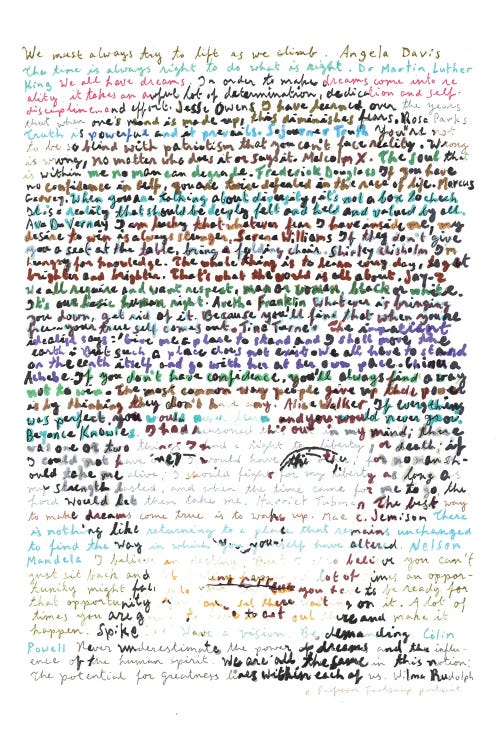 We must always try to lift as we climb. Angela Davis
The time is always right to do what is right. Dr Martin Luther
King We all have dreams. In order to make dreams come into re
ality, it takes an awful lot of determination, dedication and self-
discipline and effort. Jesse Owens I have learned over the years
that when one's mind is made up, this diminishes fear. Rosa Parks
Truth is powerful and it prevails. Sojourner Truth You're not
to be so blind with patriotism that you can't face reality. Wrong
is wrong, no matter who does it or says it. Malcolm X. The soul that
is within me no man can degrade. Frederick Douglass If you have
no confidence in self, you are twice defeated in the race of life. Marcus
Garvey. When you are talking about diversity, it's not a box to check
It is a reality that should be deeply felt and held and valued by all.
Ava D. Vernay I am lucky that whatever fear I have inside me, my
desire to win is always stronger. Serena Williams If they don't give
you a seat at the table, bring a folding chair. Shirley Chisholm I'm
hungry for knowledge. The whole thing is to learn every day, to get
brighter and brighter. That's what the world is all about. Jay-Z
We all require and want respect, man or woman, black or white.
It's our basic human right. Aretha Franklin Whatever is bringing
you down, get rid of it. Because you'll find that when you're
free.. your true self comes out. Tina Turner The
idealist says: Give me a place to stand and I shall move the
earth. But such a place does not exist. We all have to stand
on the earth itself and go with her at her own pace. Chinua
Achebe. If you don't have confidence, you'll always find a way
not to win. The most common way people give up their power
is by thinking they don't have any. Alice Walker. If everything
was perfect, you would never learn and you would never grow.
Beyonce Knowles. I had reasoned this out in my mind; there
was one or two things I had a right to liberty or death; if
I could not have one, I would have the other; for no man sh-
ould take me alive; I should fight for my liberty as long as
my strength lasted, and when the time came for me to go the
lord would let them take me. Harriet Tubman The best way
to make dreams come true is to wake up. Mae C. Jemison There
is nothing like returning to a place that remains unchanged
to find the way in which you yourself have altered. Nelson
Mandela I believe in destiny. But I also believe you can't
just sit back and let happen. A lot of times an oppor-
tunity might fall into but you have to be ready for
that opportunity. sit there waiting on it. A lot of
times you are going to have to get out there and make it
happen. Spike Have a vision. Be demanding Colin
Powell Never underestimate the power of dreams and the influ-
ence of the human spirit. We are all the same in this notion:
The potential for greatness lives within each of us. Wilma Rudolph
a Professor Foolscap portrait